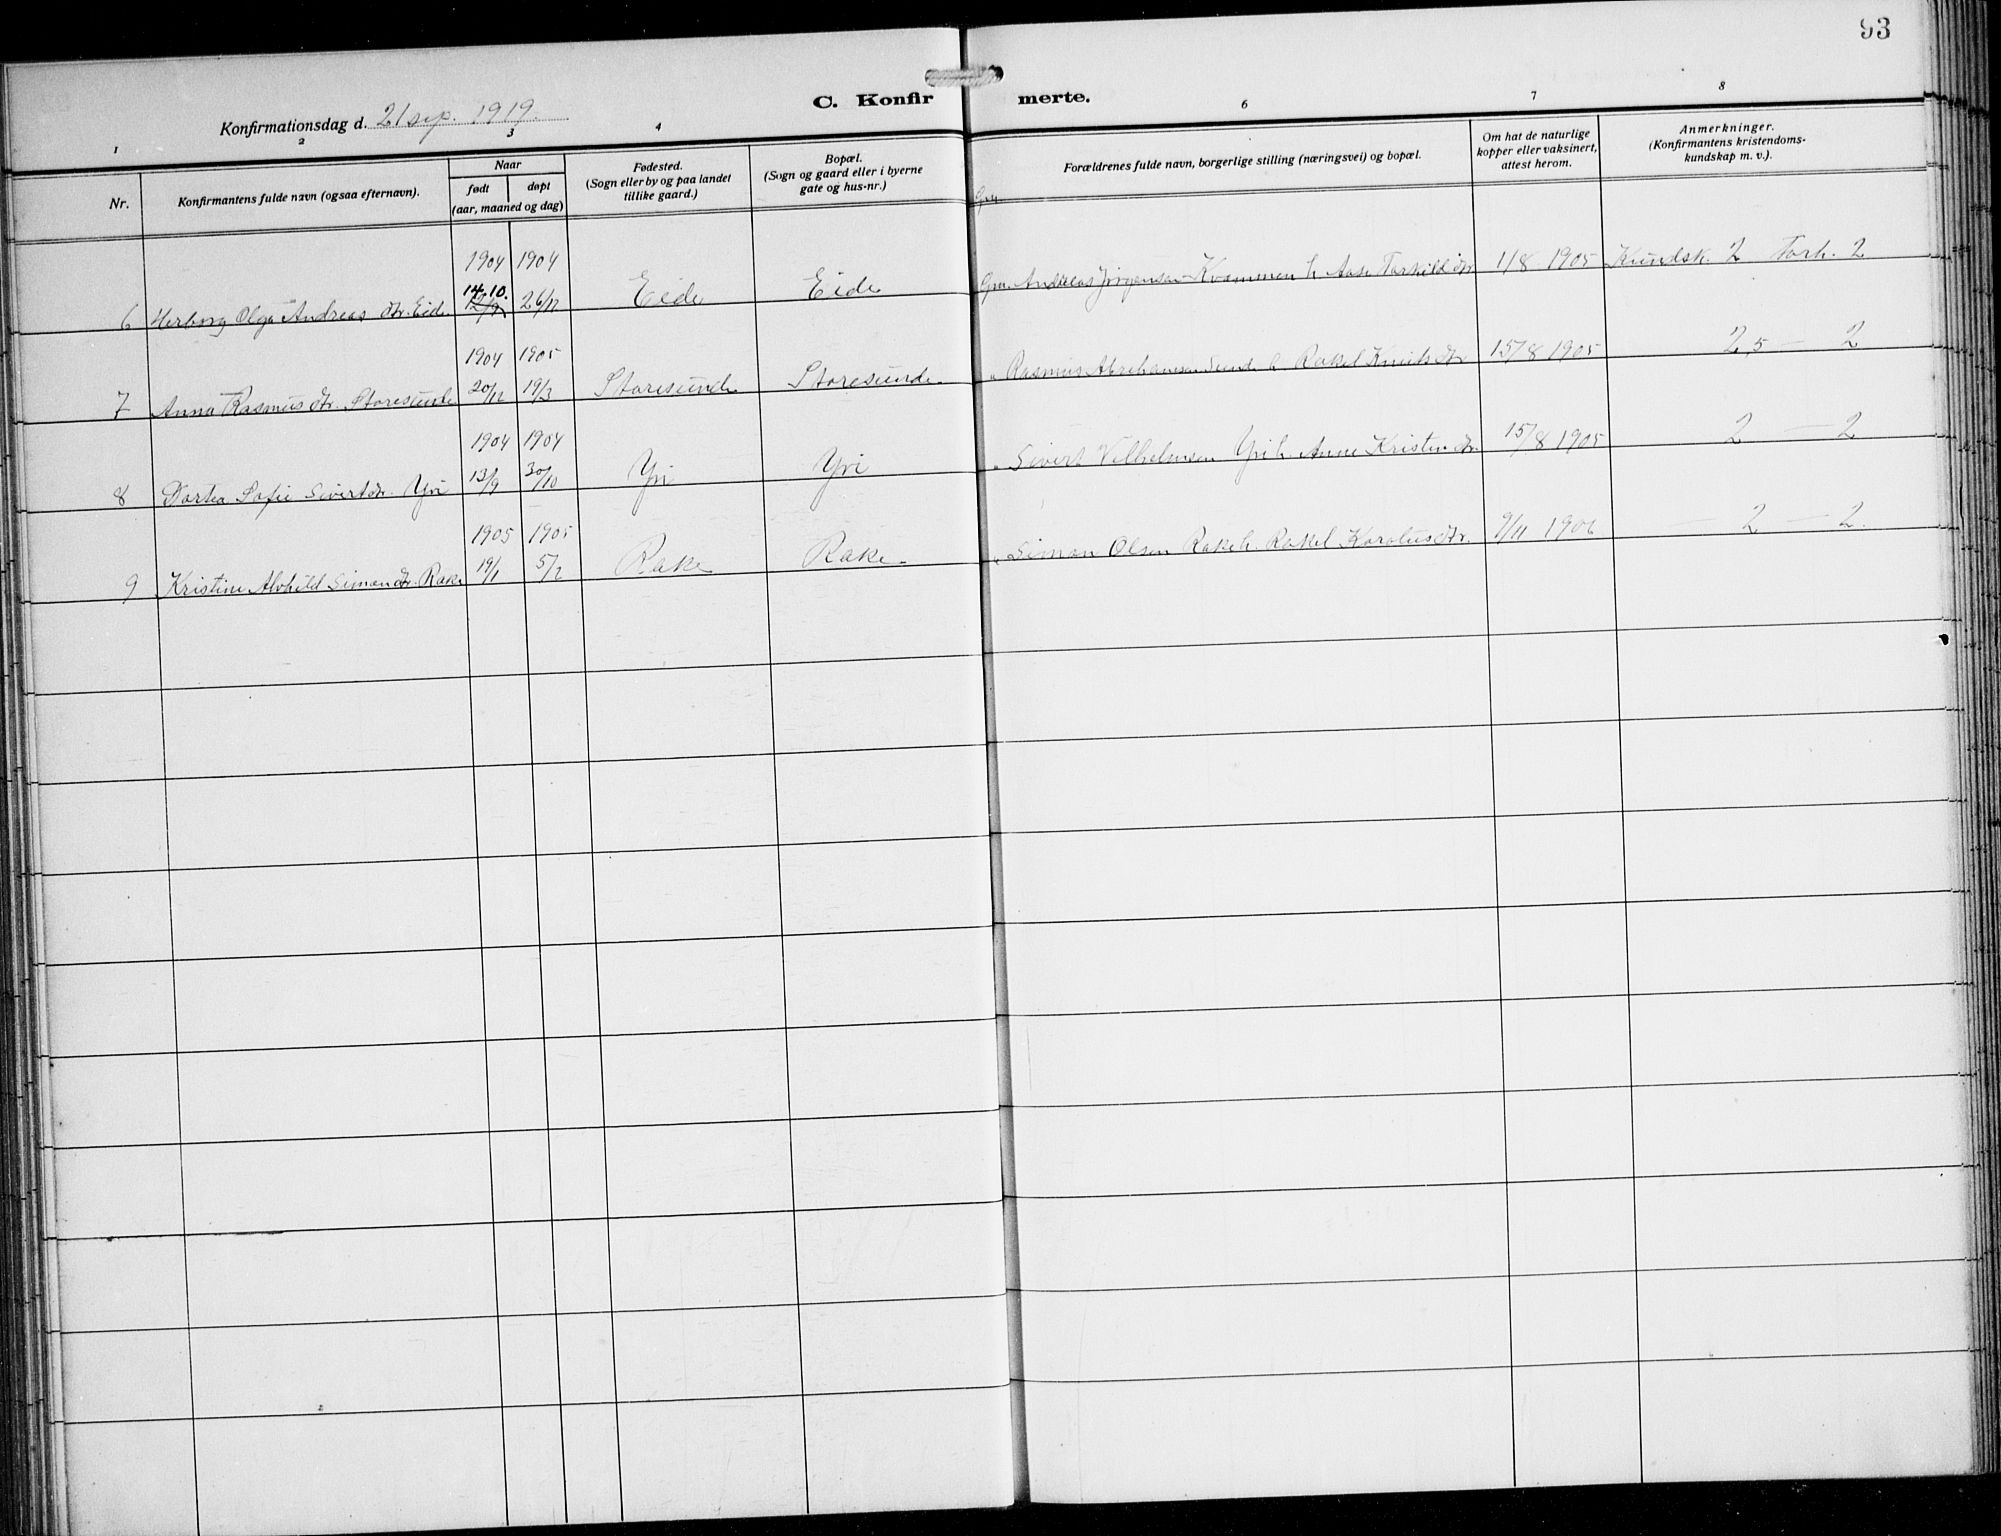 93
C. Konfirmerte.
Konfirmationsdag d. 21 sep. 1919.
1 2 3 4 6 7 8
Nr.
Konfirmantens fulde navn (ogsaa efternavn).
Naar
født døpt
(aar, maaned og dag)
Fødested.
(Sogn eller by og paa landet
tillike gaard.)
Bopæl.
(Sogn og gaard eller i byerne
gate og hus-nr.)
Forældrenes fulde navn, borgerlige stilling (næringsvei) og bopæl.
Om hat de naturlige
kopper eller vaksinert,
attest herom.
Anmerkninger.
(Konfirmantens kristendoms-
kundskap m. v.).
1904 1904
14.10.
6 Herborg Olga Andreas dtr. Eide 12/9 26/12 Eide Eide Gm. Andreas Jørgensen Kvammen h. Aase Torkild dtr 1/8 1905 Kundsk. 2 Forh. 2
1904 1905
7 Anna Rasmus dtr. Storesunde 20/12 19/3 Storesunde Storesunde. " Rasmus Abrahamsen Sunde h. Rakel Knuts dtr 15/8 1905 2,5 — 2
1904 1904
8 Dortea Sofie Sivert dr. Yri 13/9 30/10 Yri Yri " Sivert Vilhelmsen Yri h. Anne Kristen dtr. 15/8 1905 2 — 2
1905 1905
9 Kristine Alvhild Simon dtr. Rake 19/1 5/2 Rake Rake. " Simon Olsen Rake h. Rakel Karolus dtr. 9/11 1906 — 2 — 2.